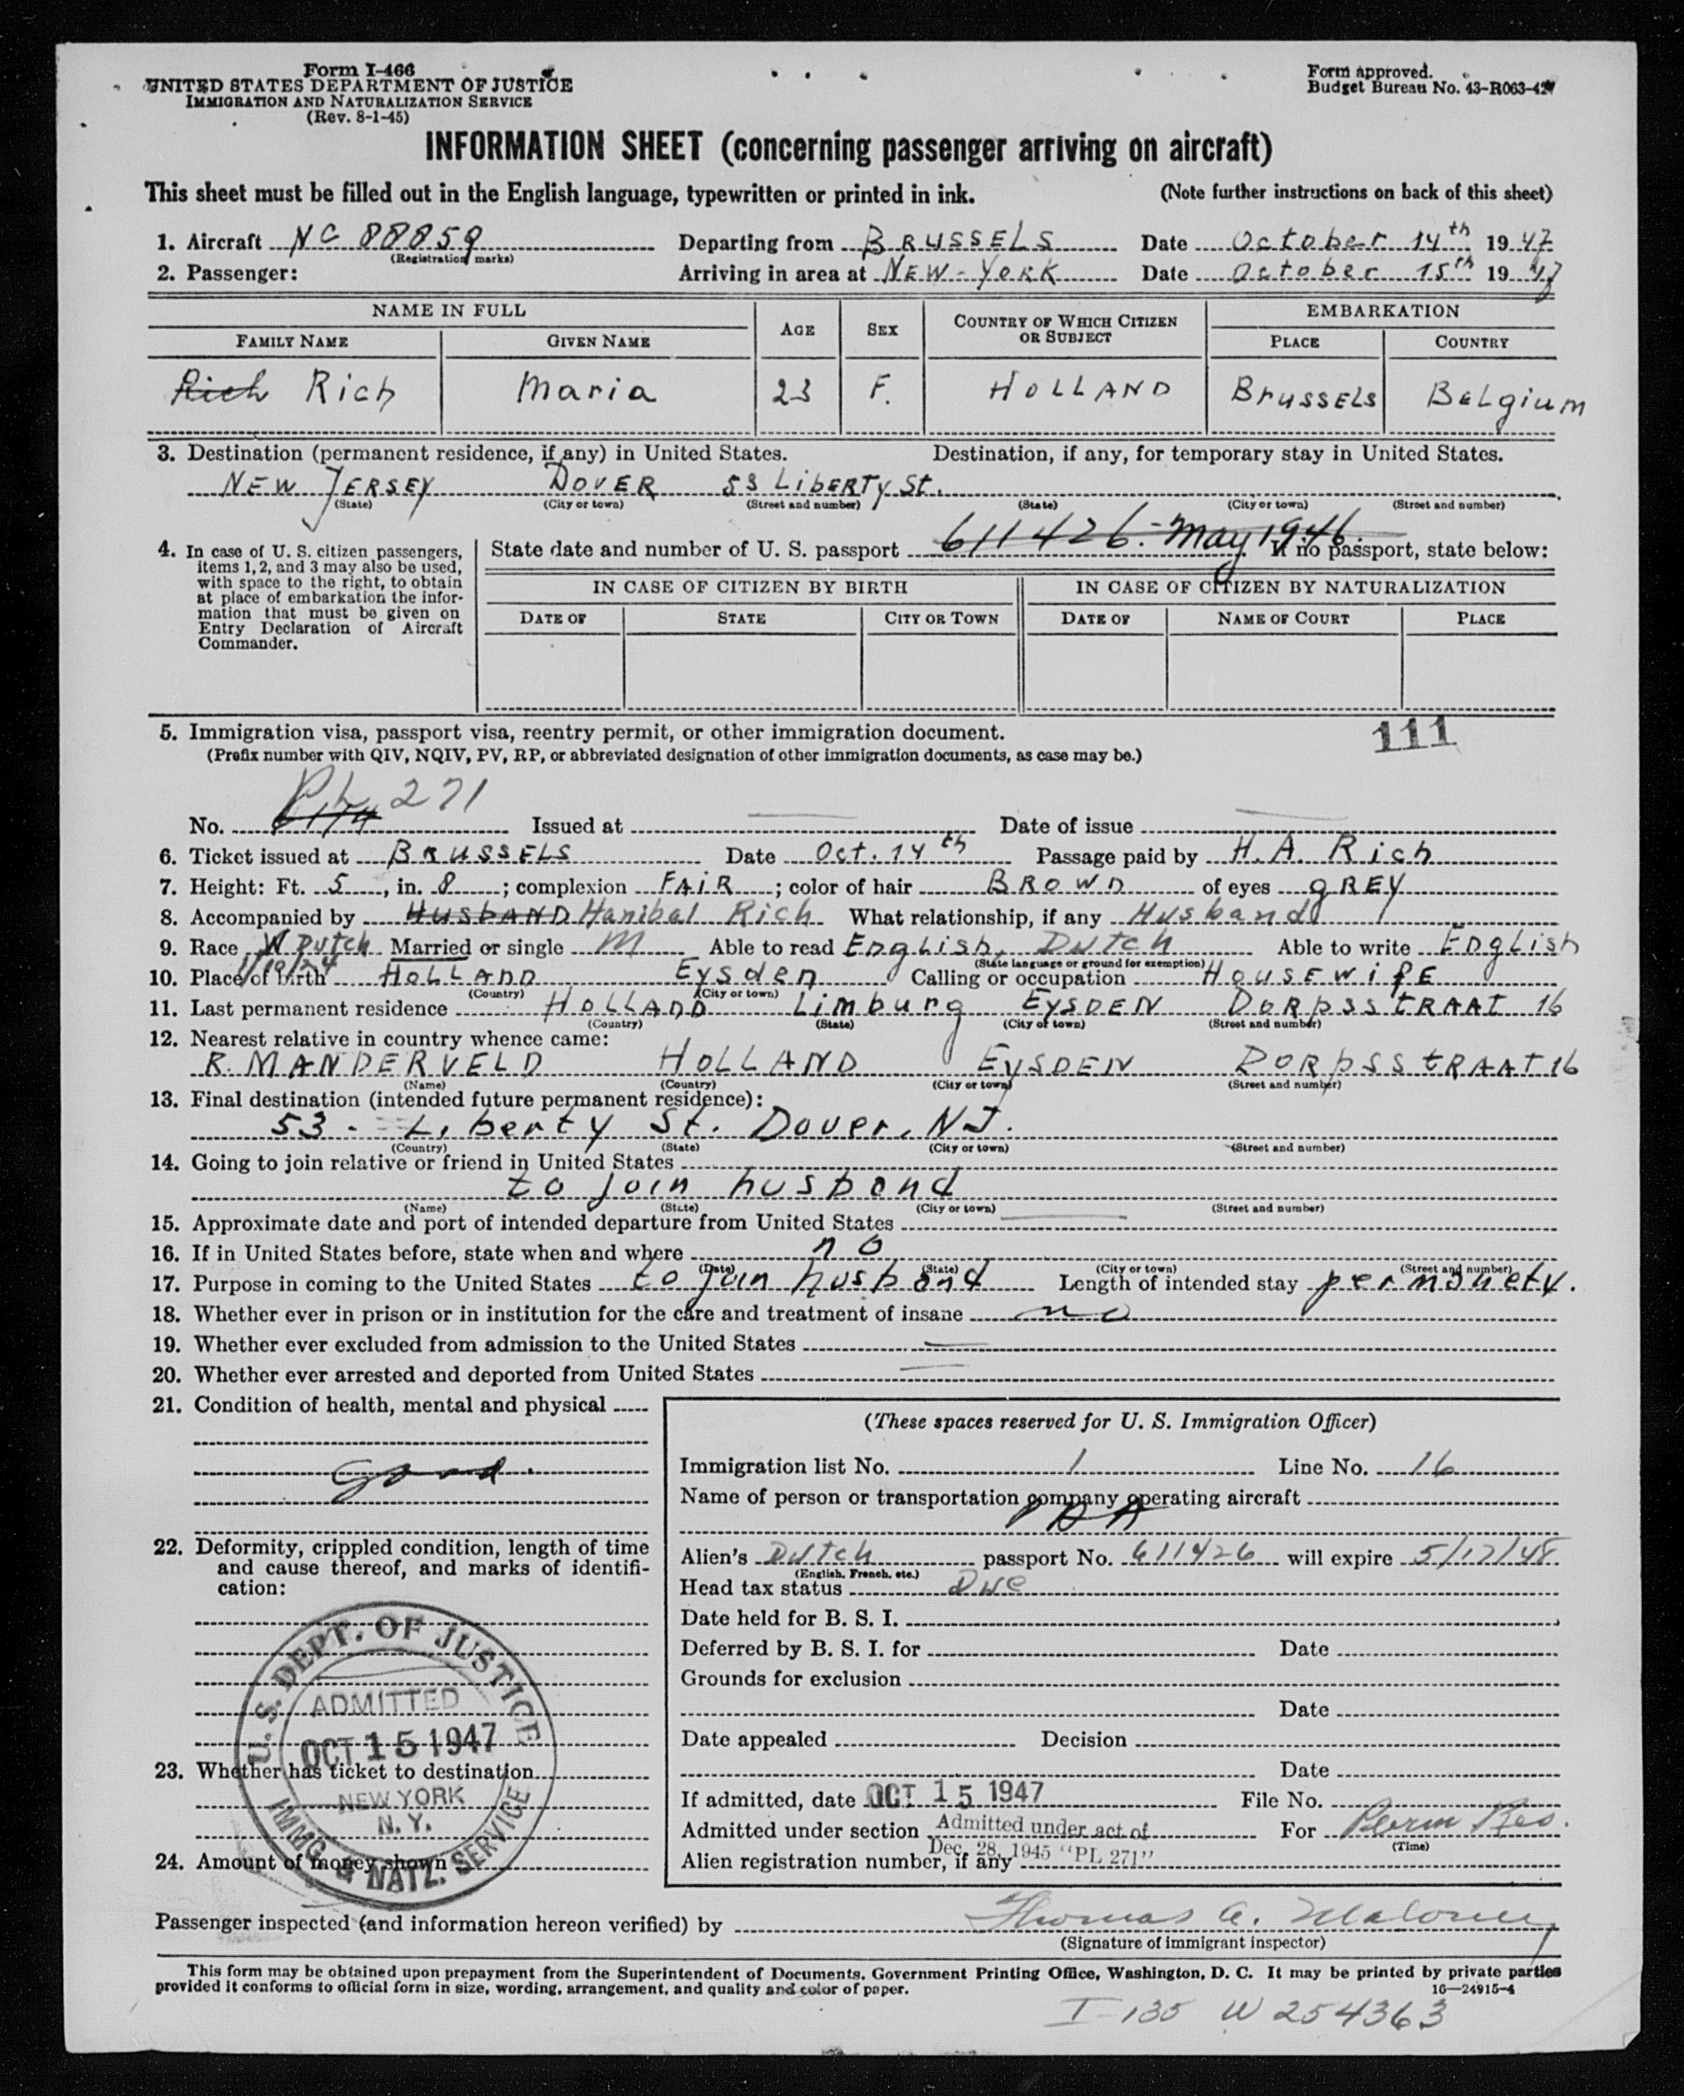 Form I-466
UNITED STATES DEPARTMENT OF JUSTICE
IMMIGRATION AND NATURALIZATION SERVICE
(Rev. 8-1-45)
Form approved.
Budget Bureau No. 43-R063-42
INFORMATION SHEET (concerning passenger arriving on aircraft)
This sheet must be filled out in the English language, typewritten or printed in ink. (Note further instructions on back of this sheet)
1. Aircraft NC 88859 Departing from BRUSSELS Date October 14th 1947
(Registration marks)
2. Passenger: Arriving in area at NEW-YORK Date October 15th 1947
NAME IN FULL AGE SEX COUNTRY OF WHICH CITIZEN OR SUBJECT EMBARKATION
FAMILY NAME GIVEN NAME PLACE COUNTRY
Rich Rich Maria 23 F. HOLLAND BrussELs BELgium
3. Destination (permanent residence, if any) in United States. Destination, if any, for temporary stay in United States.
NEW JERSEY DOVER 53 LiBERTY St.
(State) (City or town) (Street and number) (State) (City or town) (Street and number)
4. In case of U. S. citizen passengers, items 1, 2, and 3 may also be used, with space to the right, to obtain at place of embarkation the information that must be given on Entry Declaration of Aircraft Commander.
State date and number of U. S. passport 611426 - May 1946. If no passport, state below:
IN CASE OF CITIZEN BY BIRTH IN CASE OF CITIZEN BY NATURALIZATION
DATE OF STATE CITY OR TOWN DATE OF NAME OF COURT PLACE
5. Immigration visa, passport visa, reentry permit, or other immigration document. 111
(Prefix number with QIV, NQIV, PV, RP, or abbreviated designation of other immigration documents, as case may be.)
PL 271
No. Issued at Date of issue
6. Ticket issued at BRUSSELS Date Oct. 14th Passage paid by H. A. Rich
7. Height: Ft. 5, in. 8; complexion FAiR; color of hair BROWN of eyes gREY
8. Accompanied by HUSbAND Hanibal Rich What relationship, if any Husband
9. Race W Dutch Married or single M Able to read English, Dutch Able to write English
(State language or ground for exemption)
1/19/24
10. Place of birth HOLLAND Eysden Calling or occupation HOUSEWifE
(Country) (City or town)
11. Last permanent residence HOLLAND Limburg EYSDEN DORpsstRAAT 16
(Country) (State) (City or town) (Street and number)
12. Nearest relative in country whence came:
R. MANDERVELD HOLLAND EYSDEN DORpsstRAAT 16
(Name) (Country) (City or town) (Street and number)
13. Final destination (intended future permanent residence):
53 - Liberty St. Dover, NJ.
(Country) (State) (City or town) (Street and number)
14. Going to join relative or friend in United States
to join husbond
(Name) (State) (City or town) (Street and number)
15. Approximate date and port of intended departure from United States
16. If in United States before, state when and where no
(Date) (State) (City or town) (Street and number)
17. Purpose in coming to the United States to join husbond Length of intended stay permonety.
18. Whether ever in prison or in institution for the care and treatment of insane no
19. Whether ever excluded from admission to the United States
20. Whether ever arrested and deported from United States
21. Condition of health, mental and physical
good.
22. Deformity, crippled condition, length of time and cause thereof, and marks of identification:
23. Whether has ticket to destination
24. Amount of money shown
U. S. DEPT. OF JUSTICE
ADMITTED
OCT 15 1947
NEW YORK
N. Y.
IMMG. & NATZ. SERVICE
(These spaces reserved for U. S. Immigration Officer)
Immigration list No. 1 Line No. 16
Name of person or transportation company operating aircraft
PAA
Alien's Dutch passport No. 611426 will expire 5/17/48
(English, French, etc.)
Head tax status Due
Date held for B. S. I.
Deferred by B. S. I. for Date
Grounds for exclusion
Date
Date appealed Decision
Date
If admitted, date OCT 15 1947 File No.
Admitted under section Admitted under act of For Perm Res.
(Time)
Dec. 28, 1945 "PL 271"
Alien registration number, if any
Passenger inspected (and information hereon verified) by Thomas A. Maloney
(Signature of immigrant inspector)
This form may be obtained upon prepayment from the Superintendent of Documents, Government Printing Office, Washington, D. C. It may be printed by private parties
provided it conforms to official form in size, wording, arrangement, and quality and color of paper. 16—24915-4
I-135 W 254363